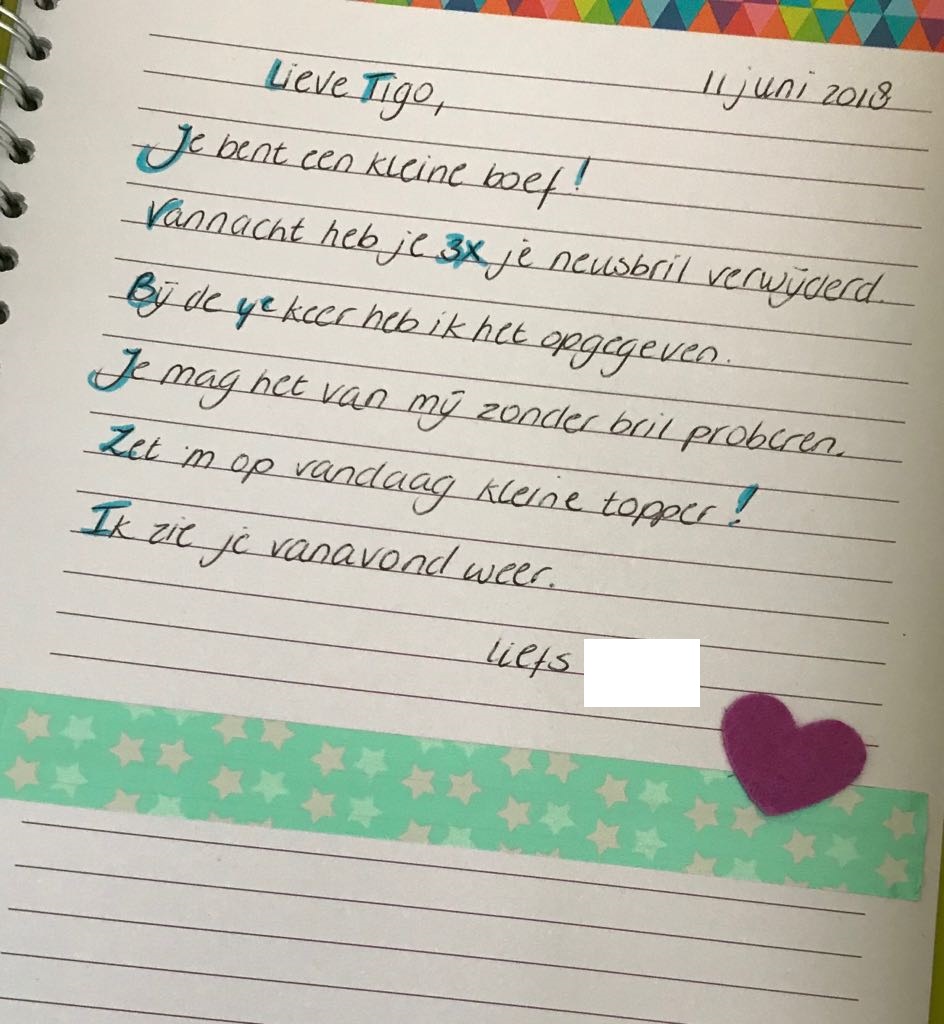 Lieve Tigo, 11 juni 2018
Je bent een kleine boef!
Vannacht heb je 3x je neusbril verwijderd.
Bij de 4e keer heb ik het opgegeven.
Je mag het van mij zonder bril proberen.
Zet 'm op vandaag kleine topper!
Ik zie je vanavond weer.
liefs